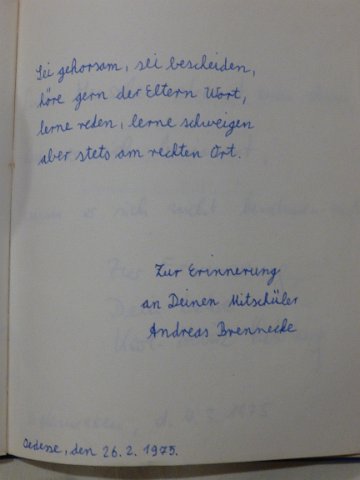 Sei gehorsam, sei bescheiden,
höre gern der Eltern Wort,
lerne reden, lerne schweigen
aber stets am rechten Ort.
Zur Erinnerung
an Deinen Mitschüler
Andreas Brennecke
Oedeme, den 26. 2. 1975.